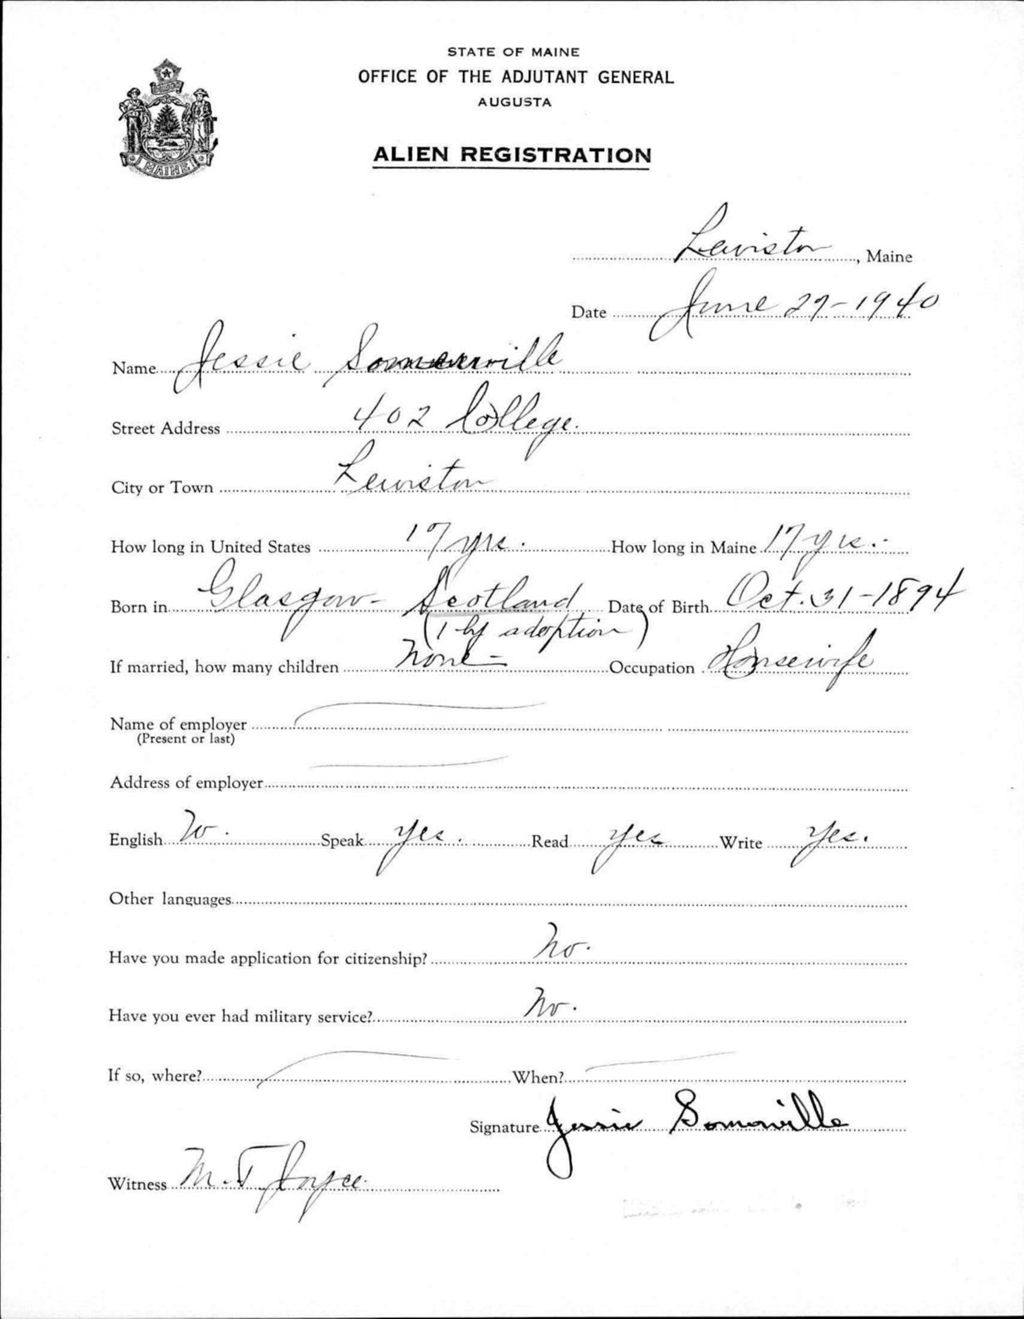 STATE OF MAINE
OFFICE OF THE ADJUTANT GENERAL
AUGUSTA
ALIEN REGISTRATION
MAINE
Lewiston, Maine
Date June 29-1940
Name Jessie Somerville
Street Address 402 College.
City or Town Lewiston
How long in United States 17 yrs. How long in Maine 17 yrs.-
Born in Glasgow- Scotland Date of Birth Oct. 31-1894
(1 by adoption)
If married, how many children None- Occupation Housewife
Name of employer
(Present or last)
Address of employer
English Speak Yes. Read Yes Write Yes.
Other languages
Have you made application for citizenship? No.
Have you ever had military service? No.
If so, where? When?
Signature Jessie Somerville
Witness M. T. Joyce